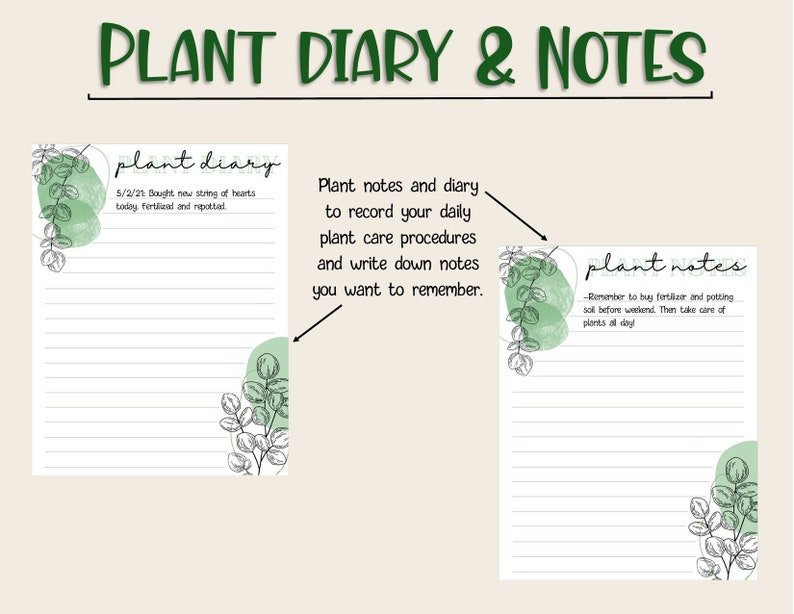 PLANT DIARY & NOTES
plant diary
PLANT DIARY
5/2/21: Bought new string of hearts
today. Fertilized and repotted.
Plant notes and diary
to record your daily
plant care procedures
and write down notes
you want to remember.
plant notes
PLANT NOTES
-Remember to buy fertilizer and potting
soil before weekend. Then take care of
plants all day!